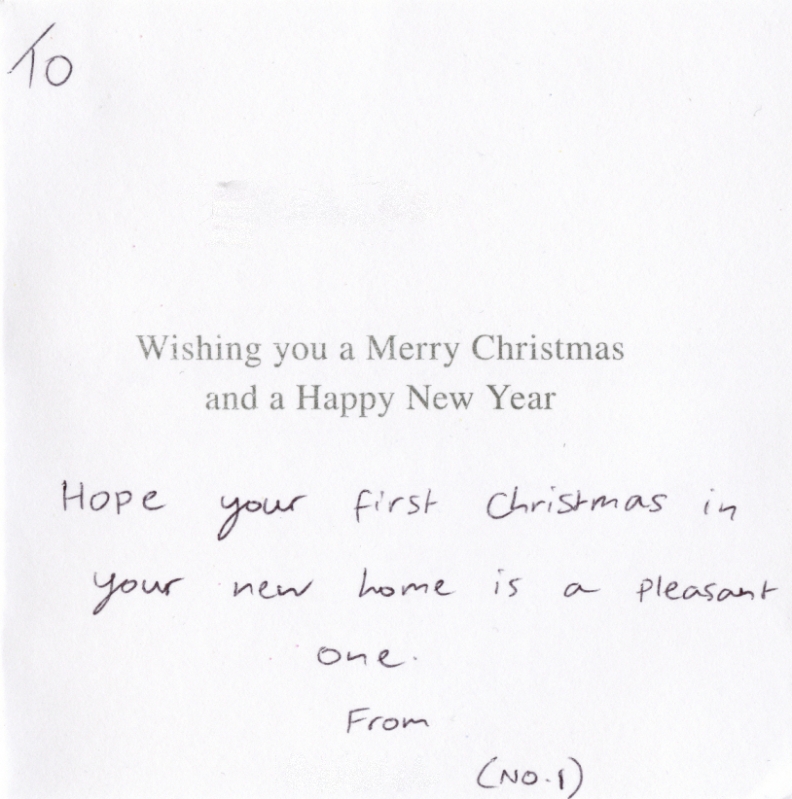 To
Wishing you a Merry Christmas
and a Happy New Year
Hope your first Christmas in
your new home is a pleasant
one.
From
(NO.1)